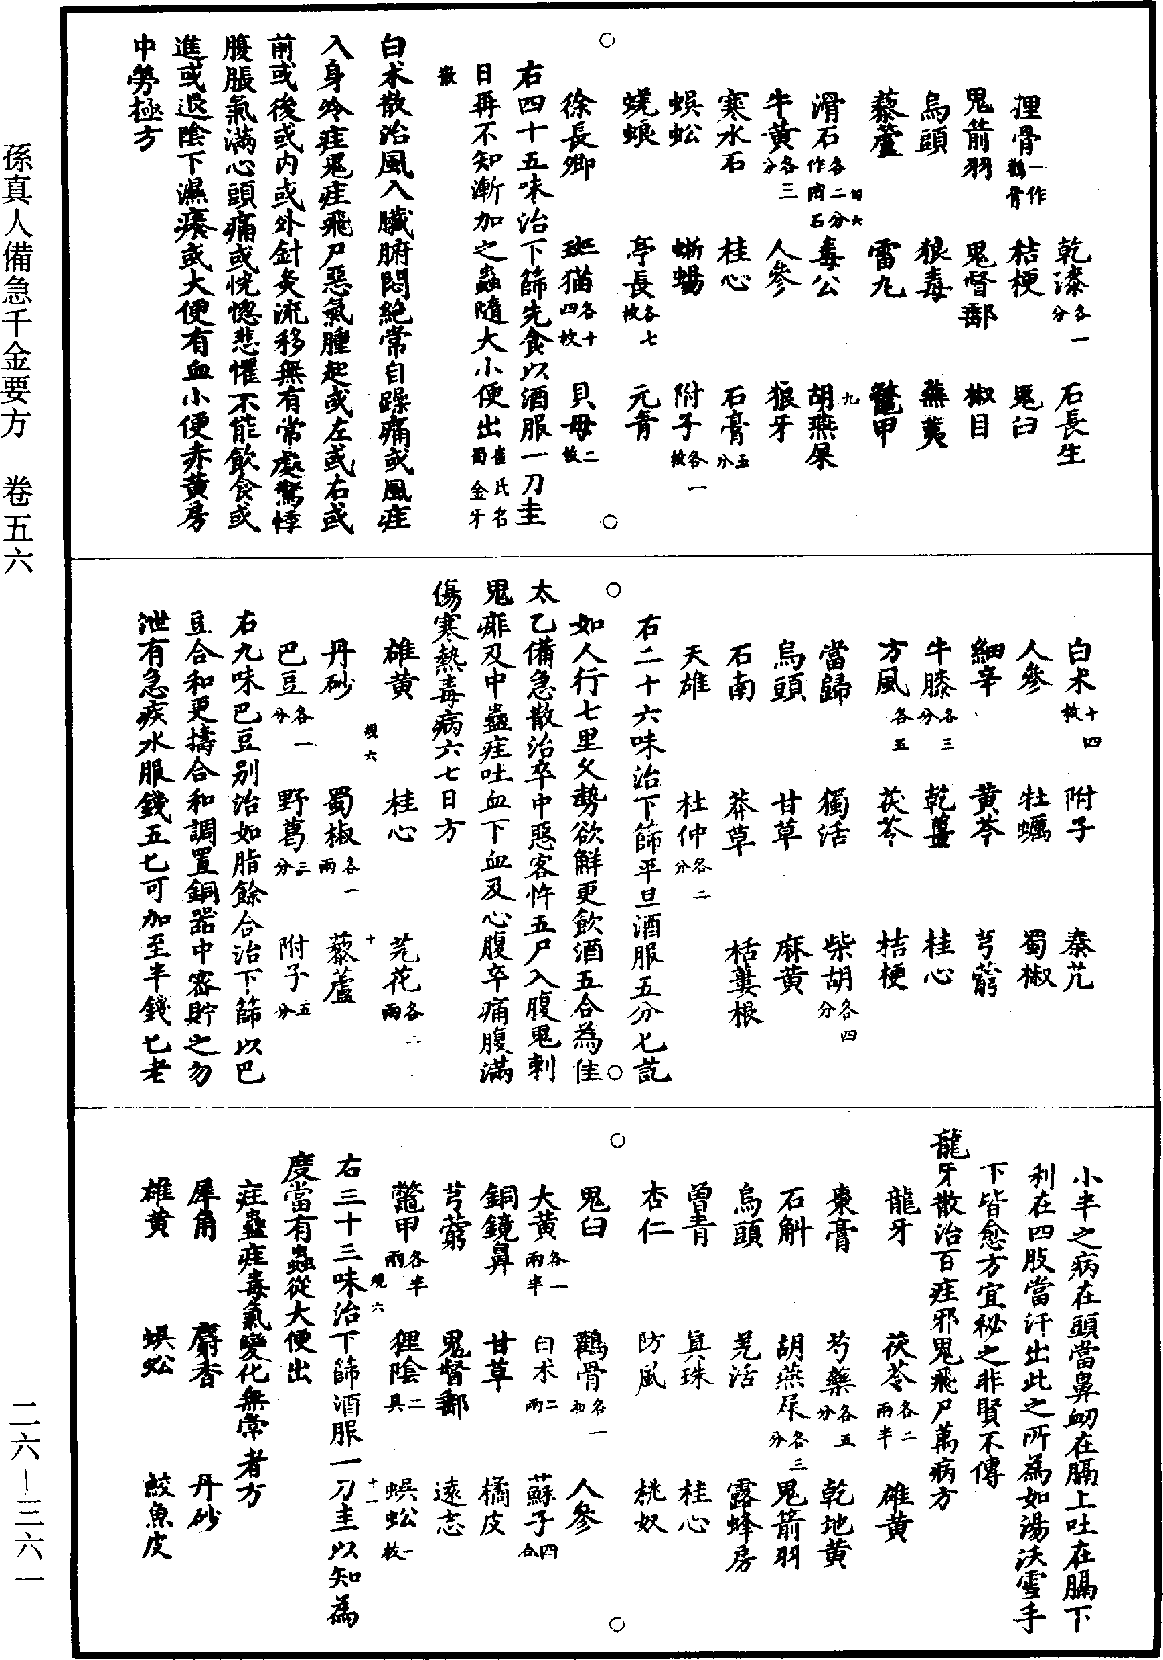 孫真人備急千金要方　卷五六
二六—三六一
乾漆各一分　石長生
狸骨一作鸛骨　桔梗　鬼臼
鬼箭羽　鬼督郵　椒目
烏頭　狼毒　蕪荑
藜蘆　雷九　鼈甲
滑石各二分作凶石　毒公　胡燕屎
牛黃各三分　人參　狼牙
寒水石　桂心　石膏五分
蜈蚣　蜥蜴　附子各一枚
蜣蜋　亭長各七枚　元青
徐長卿　斑猫各十四枚　貝母二枚
右四十五味治下篩先食以酒服一刀圭
日再不知漸加之蟲隨大小便出崔氏名蜀金牙
散
白朮散治風入臟腑悶絕常自躁痛或風疰
入身冷疰鬼疰飛尸惡氣腫起或左或右或
前或後或内或外針灸流移無有常處驚悸
腹脹氣滿心頭痛或恍惚悲懼不能飲食或
進或退陰下濕癢或大便有血小便赤黃房
中勞極方
白朮十四枚　附子　秦艽
人參　牡蠣　蜀椒
細辛　黃芩　芎藭
牛膝各三分　乾薑　桂心
方風各五　茯苓　桔梗
當歸　獨活　柴胡各四分
烏頭　甘草　麻黃
石南　莽草　栝蔞根
天雄　杜仲各二分
右二十六味治下篩平旦酒服五分匕訖
如人行七里久勢欲解更飲酒五合為佳
太乙備急散治卒中惡客忤五尸入腹鬼刺
鬼痱及中蠱疰吐血下血及心腹卒痛腹滿
傷寒熱毒病六七日方
雄黃　桂心　芫花各二兩
丹砂　蜀椒各一兩　藜蘆
巴豆各一分　野葛三分　附子五分
右九味巴豆别治如脂餘合治下篩以巴
豆合和更擣合和調置銅器中密貯之勿
泄有急疾水服錢五匕可加至半錢匕老
小半之病在頭當鼻衂在膈上吐在膈下
利在四肢當汗出此之所為如湯沃雪手
下皆愈方宜祕之非賢不傳
龍牙散治百疰邪鬼飛尸萬病方
龍牙　茯苓各二兩半　雄黃
棗膏　芍藥各五分　乾地黃
石斛　胡燕屎各三分　鬼箭羽
烏頭　羌活　露蜂房
曾青　真珠　桂心
杏仁　防風　桃奴
鬼臼　鸛骨　人參
大黃各一兩半　白朮二兩　蘇子四合
銅鏡鼻　甘草　橘皮
芎藭　鬼督郵　遠志
鼈甲各半兩　狸陰二具　蜈蚣一枚
右三十三味治下篩酒服一刀圭以知為
度當有蟲從大便出
疰蠱疰毒氣變化無常者方
犀角　麝香　丹砂
雄黃　蜈蚣　鮫魚皮